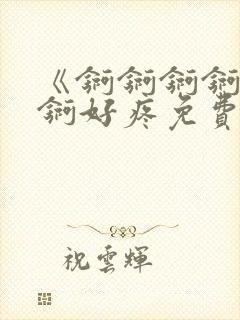 《锕锕锕锕
锕好疼免費
祝雲輝